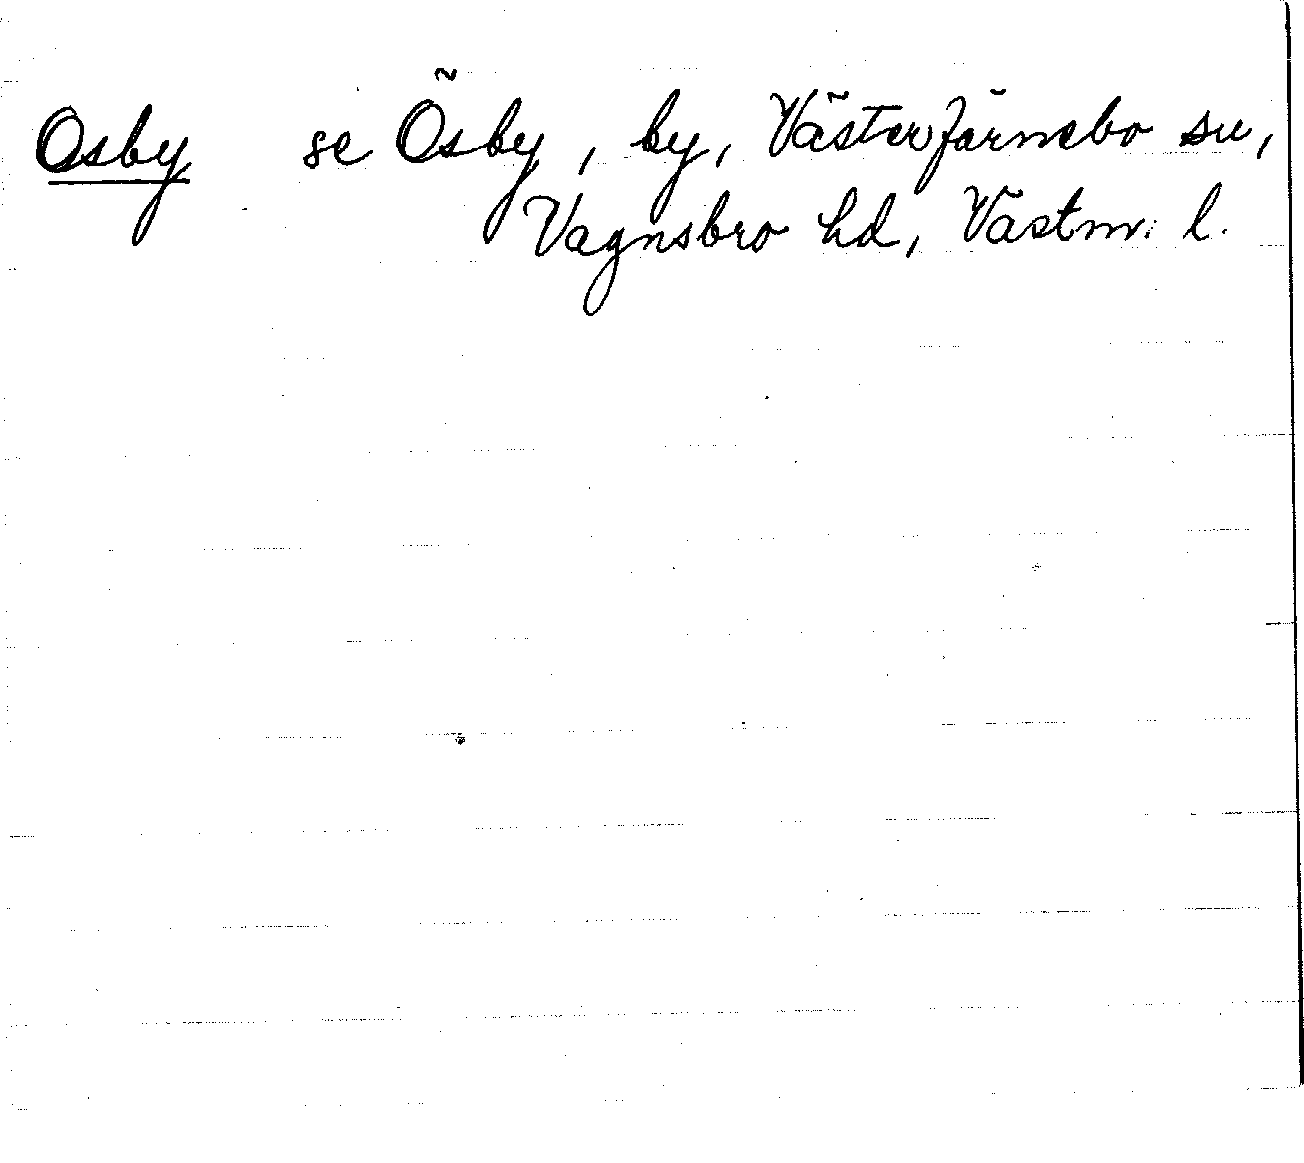 Osby se Ösby, by, Västerfärnebo sn,
Vagnsbro hd, Västm. l.